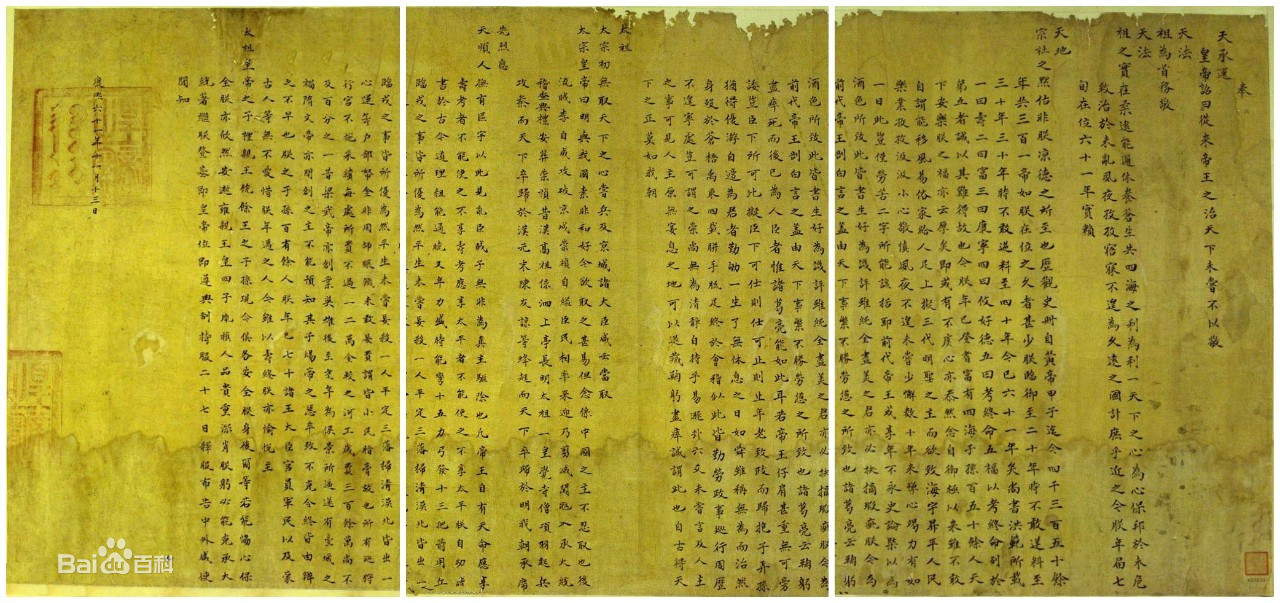 奉
天承運
皇帝詔曰從來帝王之治天下未嘗不以敬
天法
祖為首務敬
天法
祖之實在柔遠能邇休養蒼生共四海之利為利一天下之心為心保邦於未危
致治於未亂夙夜孜孜寤寐不遑為久遠之國計庶乎近之今朕年屆七
旬在位六十一年實賴
天地
宗社之默佑非朕涼德之所至也歷觀史冊自黃帝甲子迄今四千三百五十餘
年共三百一帝如朕在位之久者甚少朕臨御至二十年時不敢逆料至
三十年三十年時不敢逆料至四十年今已六十一年矣尚書洪範所載
一曰壽二曰富三曰康寧四曰攸好德五曰考終命五福以考終命列於
第五者誠以其難得故也今朕年已登耆富有四海子孫百五十餘人天
下安樂朕之福亦云厚矣即或有不虞心亦泰然念自御極以來雖不敢
自謂能移風易俗家給人足上擬三代明聖之主而欲致海宇昇平人民
樂業孜孜汲汲小心敬慎夙夜不遑未嘗少懈數十年來殫心竭力有如
一日此豈僅勞苦二字所能該括耶前代帝王或享年不永史論概以為
酒色所致此皆書生好為譏評雖純全盡美之君亦必抉摘瑕疵朕今為
前代帝王剖白言之蓋由天下事繁不勝勞憊之所致也諸葛亮云鞠躬
酒色所致此皆書生好為譏評雖純全盡美之君亦必抉摘瑕疵朕今為
前代帝王剖白言之蓋由天下事繁不勝勞憊之所致也諸葛亮云鞠躬
盡瘁死而後已為人臣者惟諸葛亮能如此耳若帝王仔肩甚重無可旁
諉豈臣下所可比擬臣下可仕則仕可止則止年老致政而歸抱子弄孫
猶得優游自適為君者勤劬一生了無休息之日如舜雖稱無為而治然
身歿於蒼梧禹乘四載胼手胝足終於會稽似此皆勤勞政事巡行周歷
不遑寧處豈可謂之崇尚無為清靜自持乎易遯卦六爻未嘗言及人主
之事可見人主原無宴息之地可以退藏鞠躬盡瘁誠謂此也自古得天
下之正莫如我朝
太祖
太宗初無取天下之心嘗兵及京城諸大臣咸云當取
太宗皇帝曰明與我國素非和好今欲取之甚易但念係中國之主不忍取也後
流賊李自成攻破京城崇禎自縊臣民相率來迎乃剪滅闖寇入承大統
稽查典禮安葬崇禎昔漢高祖係泗上亭長明太祖一皇覺寺僧項羽起兵
攻秦而天下卒歸於漢元末陳友諒等蜂起而天下卒歸於明我朝承席
先烈應
天順人撫有區宇以此見亂臣賊子無非為真主驅除也凡帝王自有天命應享
壽考者不能使之不享壽考應享太平者不能使之不享太平朕自幼讀
書於古今道理粗能通曉又年力盛時能彎十五力弓發十三把箭用兵
臨戎之事皆所優為然平生未嘗妄殺一人平定三藩掃清漠北皆出一
臨戎之事皆所優為然平生未嘗妄殺一人平定三藩掃清漠北皆出一
心運籌戶部帑金非用師賑饑未敢妄費謂皆小民脂膏故也所有巡狩
行宮不施采繢每處所費不過一二萬金較之河工歲費三百餘萬尚不
及百分之一昔梁武帝亦創業英雄後至耄年為侯景所逼遂有臺城之
禍隋文帝亦開創之主不能預知其子煬帝之惡卒致不克令終皆由辨
之不早也朕之子孫百有餘人朕年已七十諸王大臣官員軍民以及蒙
古人等無不愛惜朕年邁之人今雖以壽終朕亦愉悅至
太祖皇帝之子禮親王饒餘王之子孫現今俱各安全朕身後爾等若能協心保
全朕亦欣然安逝雍親王皇四子胤禛人品貴重深肖朕躬必能克承大
統著繼朕登基即皇帝位即遵典制持服二十七日釋服布告中外咸使
聞知
康熙六十一年十一月十三日
Bai百科